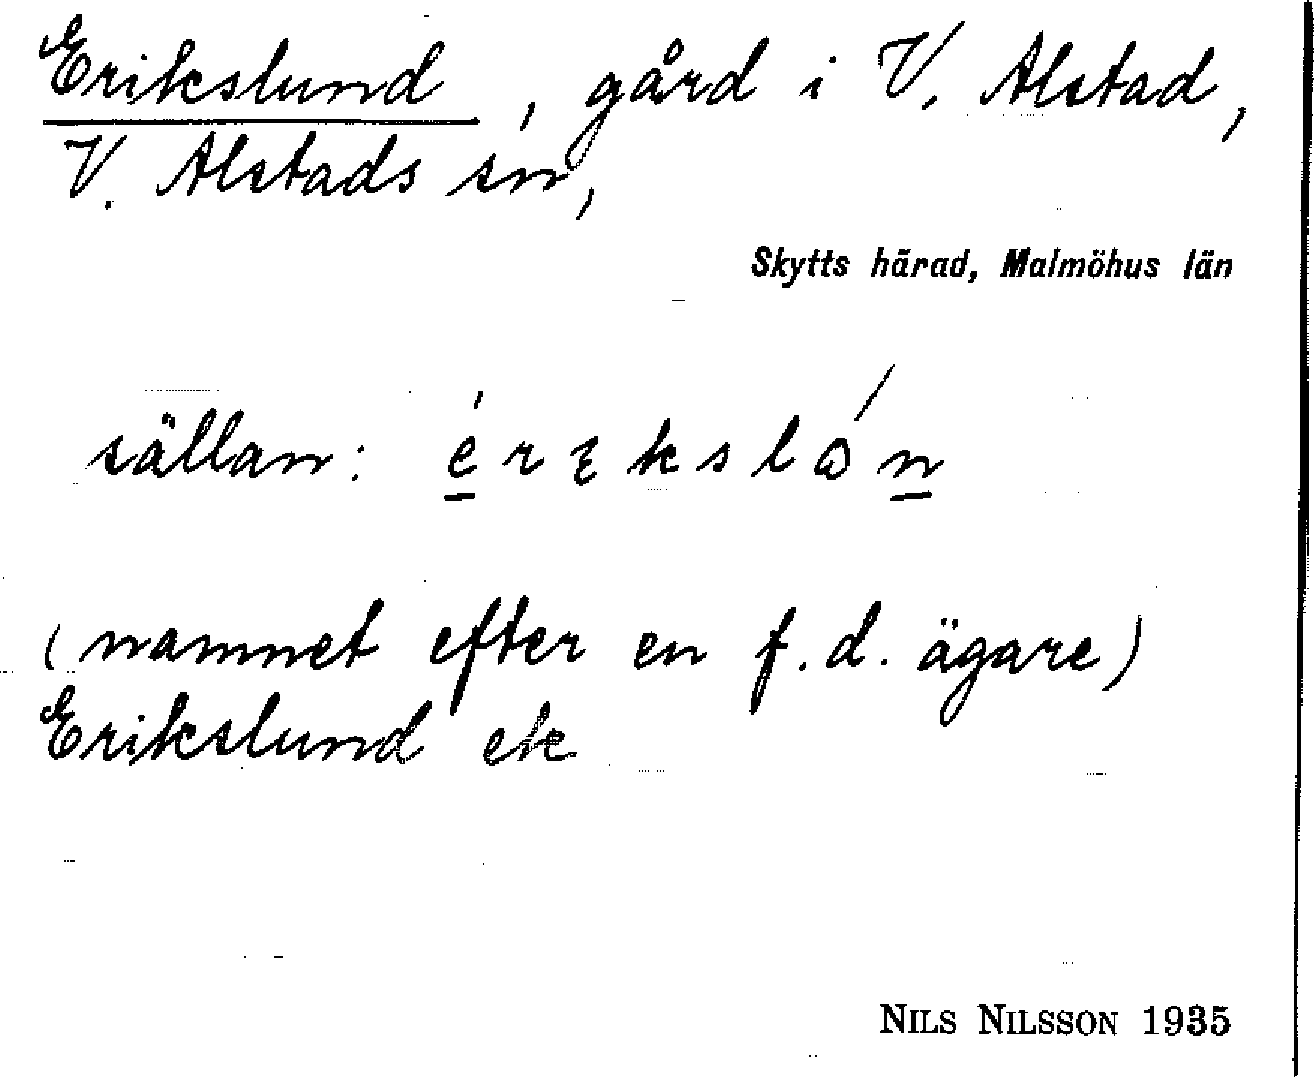 Erikslund, gård i V. Alstad,
V. Alstads sn,
Skytts härad, Malmöhus län
sällan:
(namnet efter en f.d. ägare)
Erikslund ek
NILS NILSSON 1935